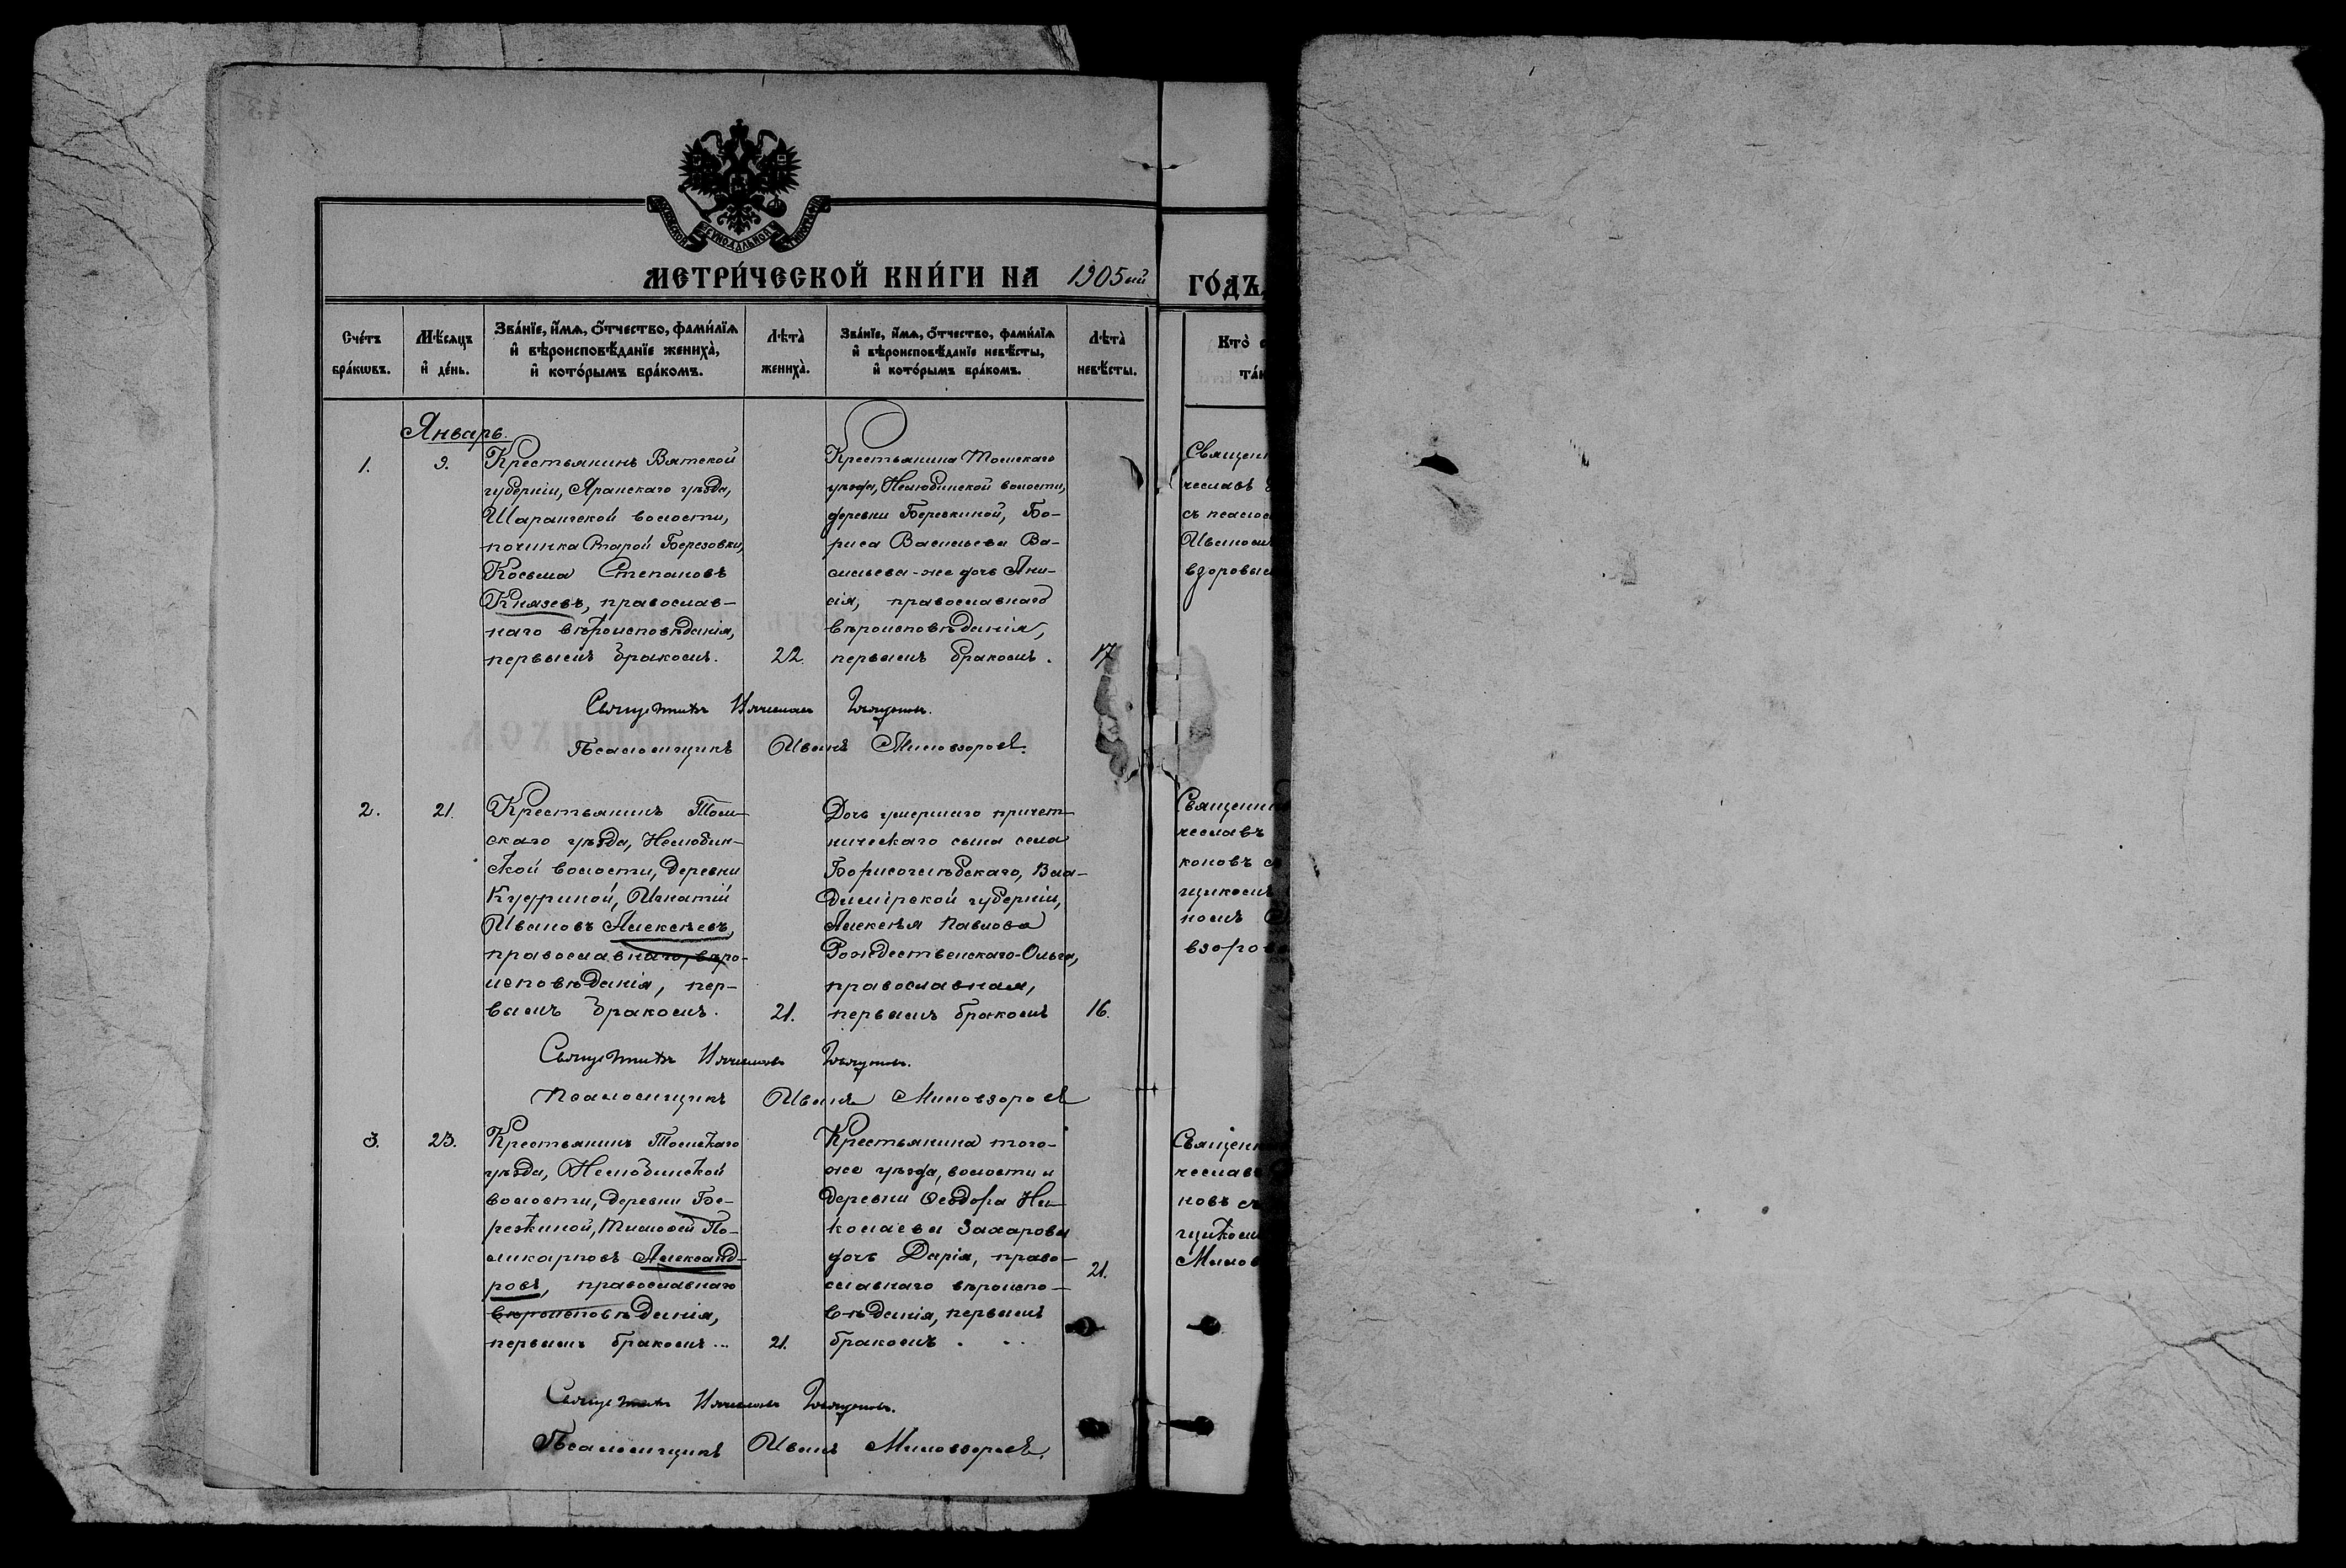 МЕТРИ́ЧЕСКОЙ КНИ́ГИ НА 1905ый ГО́ДЪ
Сче́тъ бра́кѡвъ.
Мѣ́сѧцъ и҆ де́нь.
Зва́нїе, и҆́мѧ, ѻ҆́тчество, фами́лїѧ
и҆ вѣроисповѣ́данїе женихà,
и҆ кото́рымъ бра́комъ.
Лѣтà женихà.
Зва́нїе, и҆́мѧ, ѻ҆́тчество, фами́лїѧ
и҆ вѣроисповѣ́данїе невѣ́сты,
и҆ кото́рымъ бра́комъ.
Лѣтà невѣ́сты.
Кто̀
Январь.
1.
9.
Крестьянинъ Вятской
губерніи, Яранскаго уѣзда,
Шарангской волости,
починка Старой Березовки,
Косьма Степановъ
Князевъ, православ-
наго вѣроисповѣданія,
первымъ бракомъ.
22.
Крестьянина Томскаго
уѣзда, Нелюбинской волости,
деревни Березкиной, Бо-
риса Васильева Ва-
сильева-же дочь Ани-
сія, православнаго
вѣроисповѣданія,
первымъ бракомъ.
17
Священникъ
Псаломщикъ Иванъ Миловзоровъ.
2.
21.
Крестьянинъ Том-
скаго уѣзда, Нелюбин-
ской волости, деревни
Кудриной, Игнатій
Ивановъ Алексѣевъ,
православнаго, вѣро-
исповѣданія, пер-
вымъ бракомъ.
21.
Дочь умершаго причет-
ническаго сына села
Борисоглѣбскаго, Вла-
димірской губерніи,
Алексѣя Павлова
Рождественскаго-Ольга,
православная,
первымъ бракомъ
16.
Священникъ
Псаломщикъ Иванъ Миловзоровъ
3.
23.
Крестьянинъ Томскаго
уѣзда, Нелюбинской
волости, деревни Бе-
резкиной, Тимофей По-
ликарповъ Александ-
ровъ, православнаго
вѣроисповѣданія,
первымъ бракомъ...
21.
Крестьянина того-
же уѣзда, волости и
деревни Ѳеодора Ни-
колаева Захарова
дочь Дарія, право-
славнаго вѣроиспо-
вѣданія, первымъ
бракомъ . . .
21.
Священникъ
Псаломщикъ Иванъ Миловзоровъ.